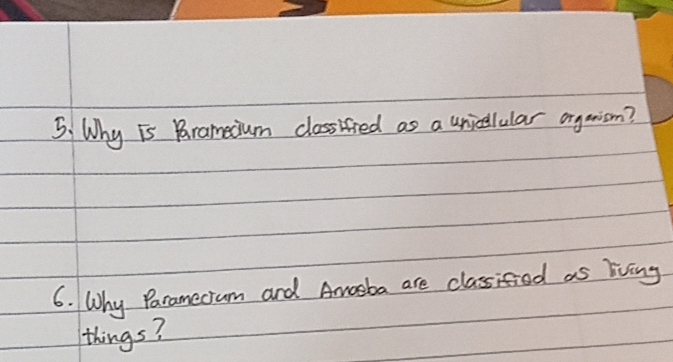 5. Why is Paramecium classified as a unicellular organism?
6. Why Paramecium and Amoeba are classified as living
things?